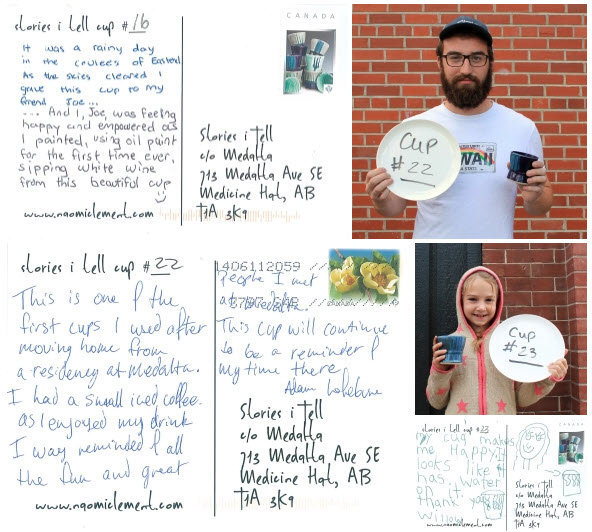 stories i tell cup #16
It was a rainy day
in the coulees of Eastend
As the skies cleared I
gave this cup to my
friend Joe...
... And I, Joe, was feeling
happy and empowered as
I painted, using oil paint
for the first time ever,
sipping white wine
from this beautiful cup
www.naomiclement.com
CANADA
Stories i Tell
c/o Medalta
713 Medalta Ave SE
Medicine Hat, AB
T1A 3K9
Cup
#22
WAII
stories i tell cup #22
This is one of the
first cups I used after
moving home from
a residency at Medalta.
I had a small iced coffee.
as I enjoyed my drink
I was reminded of all
the fun and great
www.naomiclement.com
1406112059
People I met
at Medalta.
This cup will continue
to be a reminder of
my time there
Adam
Stories i Tell
c/o Medalta
713 Medalta Ave SE
Medicine Hat, AB
T1A 3K9
Cup
#23
stories i tell cup #23
my cup makes
me Happy. It
looks like it
has water
on it.
thank you
willow
www.naomiclement.com
CANADA
Stories i Tell
c/o Medalta
713 Medalta Ave SE
Medicine Hat, AB
T1A 3K9